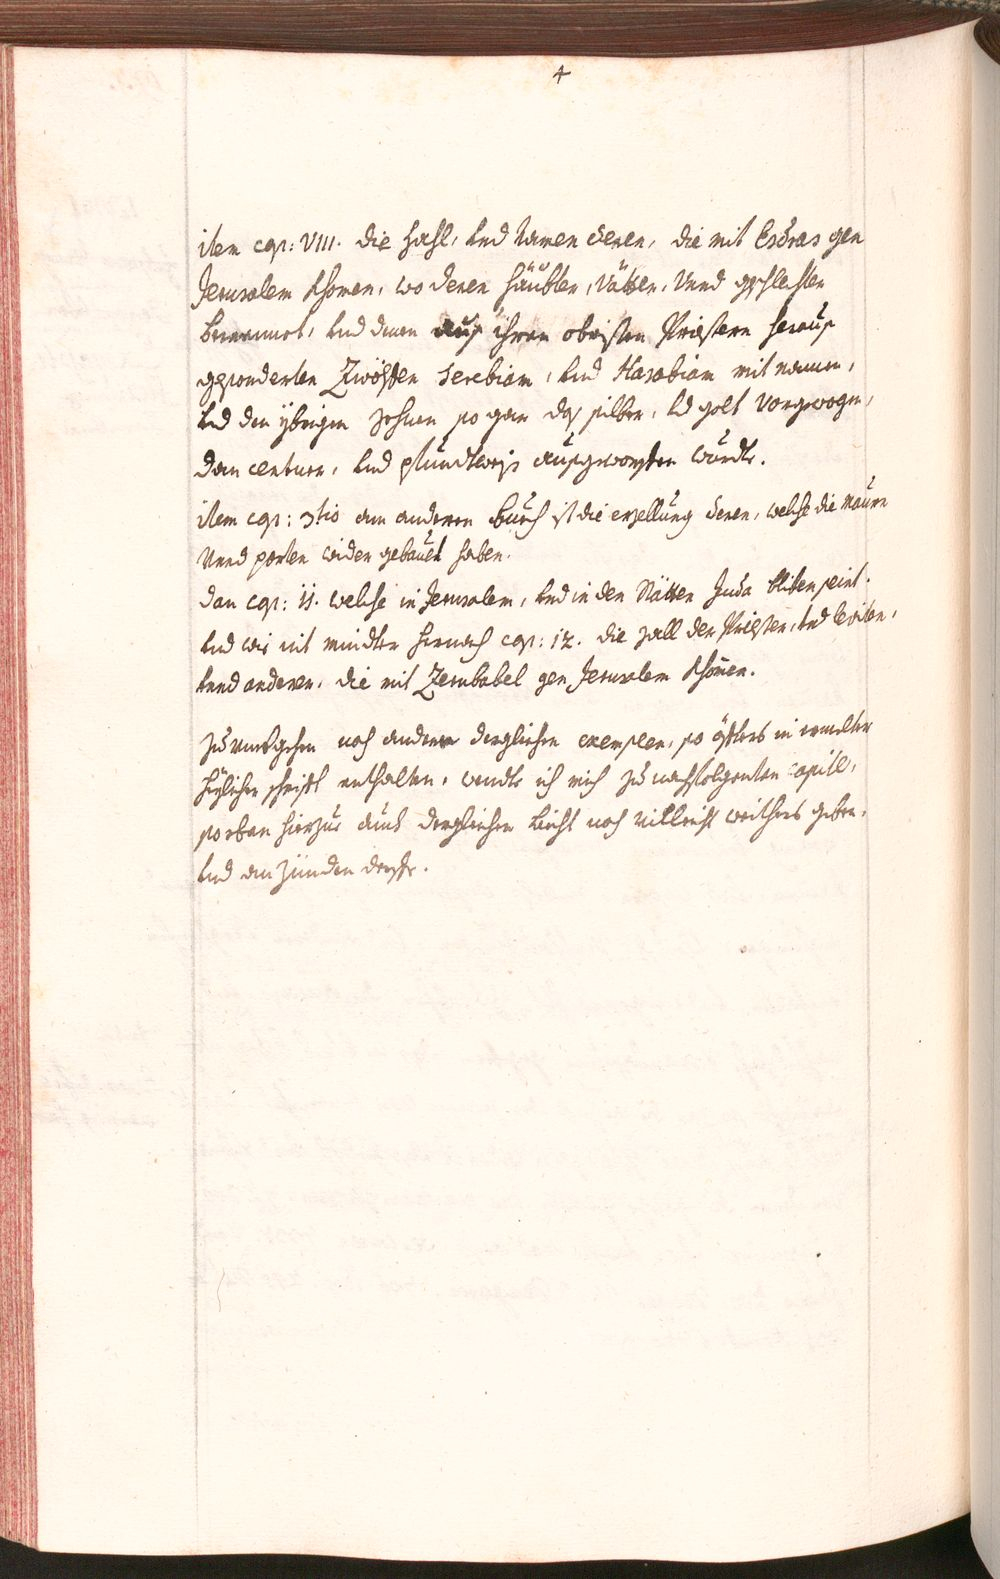 4
item cap: VIII. die Zahl, und Namen deren, die mit Esdras gen
Jerusalem khomen, wo deren häubter, vätter, unnd gschlechter
benennet, und denen auß ihren obristen Priestern herauß
gesonderten Zwölffen Serebiam, und Hasabiam mit namen,
und den ybrigen zehnen so gar das silber, und golt vorgewogen,
dan centner, und pfundtweis außgeworffen würdt.
item cap: 3tio am anderen buech ist die erzellung deren, welche die Mauren
unnd porten wider gebauet haben.
dan cap: 11. welche in Jerusalem, und in den Stätten Juda bliben seint.
und wie nit mindter hernach cap: 12. die zall der Priester, und leviten,
unnd anderen, die mit Zerubabel gen Jerusalem khomen.
Zu umbgehen noch andere dergleichen exemplen, so öffters in ermelter
heyligen schrifft enthalten, wendte ich mich zu nachfolgenten capitl,
so eben hierzue auch dergleichen liecht noch villeicht weithers geben,
und an zünden derffte.